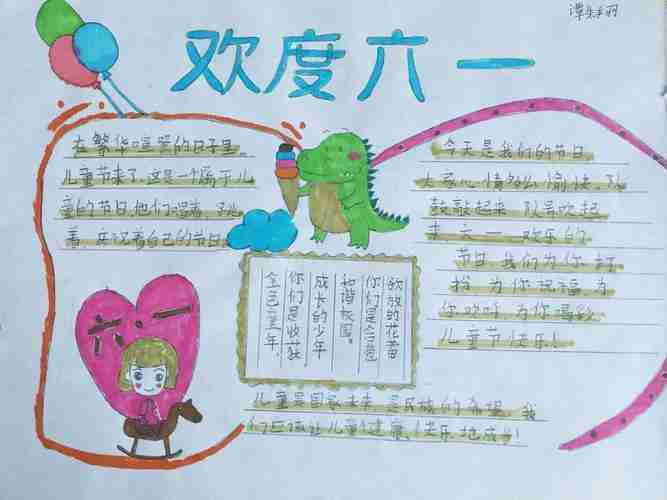 欢度六一
在繁华喧哭的日子里,
儿童节来了,这是一个属于儿
童的节日,他们唱着,
着,庆祝着自己的节日
今天是我们的节日
大家心情多么愉快,队
鼓敲起来,队号吹起
来,六一一欢乐的
节日,我们为你打
为你祝福,为
你欢呼,为你喝彩
儿童节快乐!
欲放的花蕾
你们是含苞
和谐校园。
成长的少年
你们是收获
金色童年,
六·一
儿童是国家未来,是民族的希望,我
们应该让儿童健康、快乐地成长!